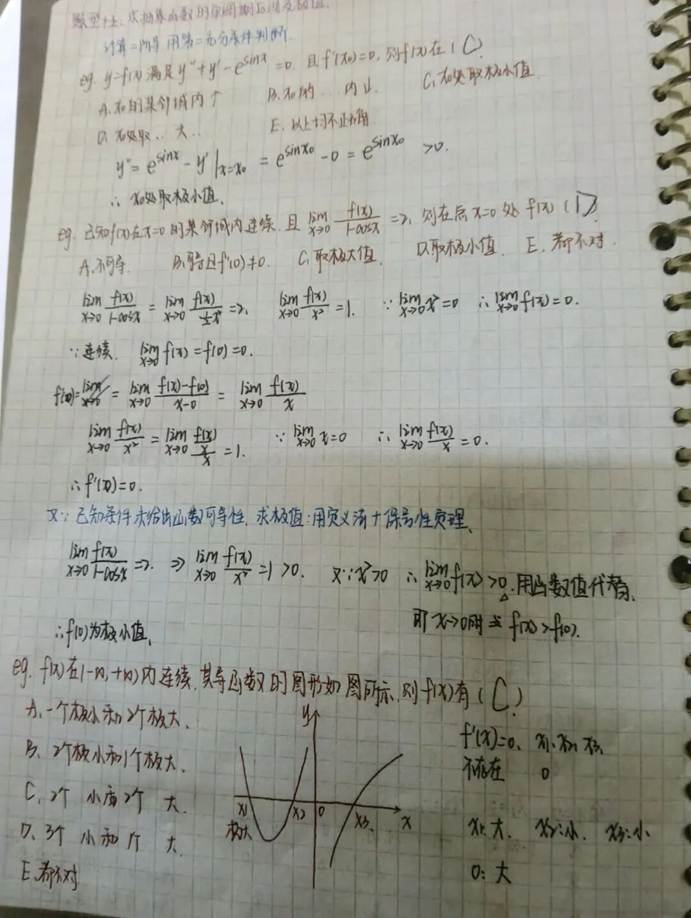 题型十五：求抽象函数的
计算二阶导，用第二充分条件判断.
eg. y=f(x)满足y''+y'-e^{sinx}=0, 且f'(x₀)=0, 则f(x)在(C)
A. x₀的某邻域内↑ B. x₀的.. 内↓ C. x₀处取极小值
D. x₀处取.. 大.. E. 以上均不正确
y''=e^{sinx}-y'|_{x=x₀}=e^{sinx₀}-0=e^{sinx₀}>0.
∴x₀处取极小值.
eg. 已知f(x)在x=0的某邻域内连续, 且lim_{x→0} f(x)/(1-cosx)=2, 则在点x=0处f(x)(D)
A. 不可导 B. 可导且f'(0)≠0. C. 取极大值 D. 取极小值. E. 都不对.
lim_{x→0} f(x)/(1-cosx)=lim_{x→0} f(x)/(½x²)=2, lim_{x→0} f(x)/x²=1. ∵lim_{x→0}x²=0 ∴lim_{x→0}f(x)=0.
∵连续. lim_{x→0}f(x)=f(0)=0.
f'(0)= =lim_{x→0} (f(x)-f(0))/(x-0)=lim_{x→0} f(x)/x
lim_{x→0} f(x)/x²=lim_{x→0} (f(x)/x)/x=1. ∵lim_{x→0}x=0 ∴lim_{x→0} f(x)/x=0.
∴f'(0)=0.
又∵已知条件未给出函数可导性, 求极值:用定义法+保号性定理.
lim_{x→0} f(x)/(1-cosx)=2. ⇒ lim_{x→0} f(x)/x²=1>0. 又∵x²>0 ∴lim_{x→0}f(x)>0 用函数值代替.
即x→0时 f(x)>f(0).
∴f(0)为极小值.
eg. f(x)在(-∞,+∞)内连续, 其导函数的图形如图所示, 则f(x)有(C)
A. 一个极小和2个极大.
B. 2个极小和1个极大.
C. 2个 小 2个 大.
D. 3个 小和1个 大.
E. 都不对
y
x₁ x₂ 0 x₃ x
极大
f'(x)=0, x₁、x₂、x₃
不存在 0
x₁:大. x₂:小. x₃:小
0:大